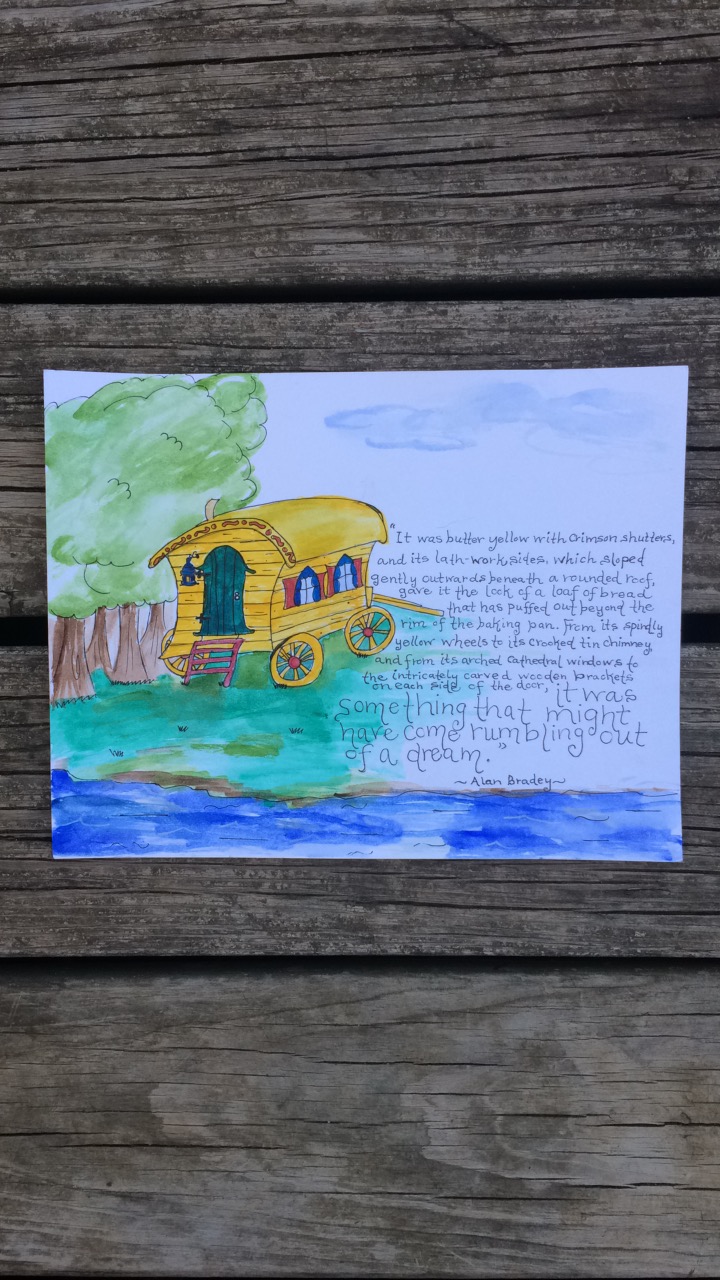 "It was butter yellow with crimson shutters,
and its lath-work sides, which sloped
gently outwards beneath a rounded roof,
gave it the look of a loaf of bread
that has puffed out beyond the
rim of the baking pan. From its spindly
yellow wheels to its crooked tin chimney,
and from its arched cathedral windows to
the intricately carved wooden brackets
on each side of the door, it was
something that might
have come rumbling out
of a dream."
~Alan Bradey~